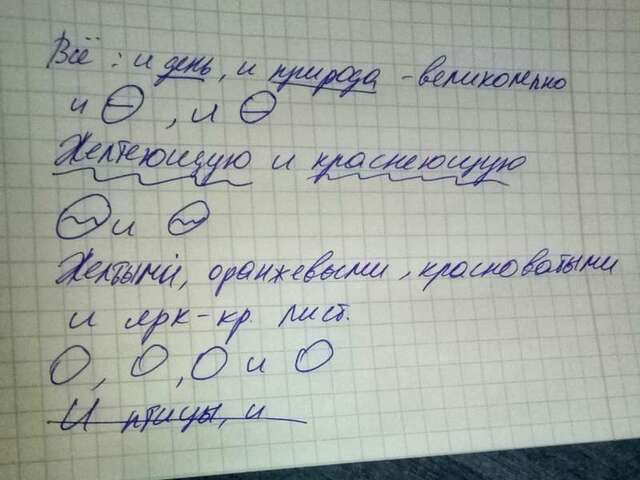 Всё: и день, и природа - великолепно
и , и
Желтеющую и краснеющую
и
Желтыми, оранжевыми, красноватыми
и ярк-кр. лист.
О, О, О и О
И птицы, и